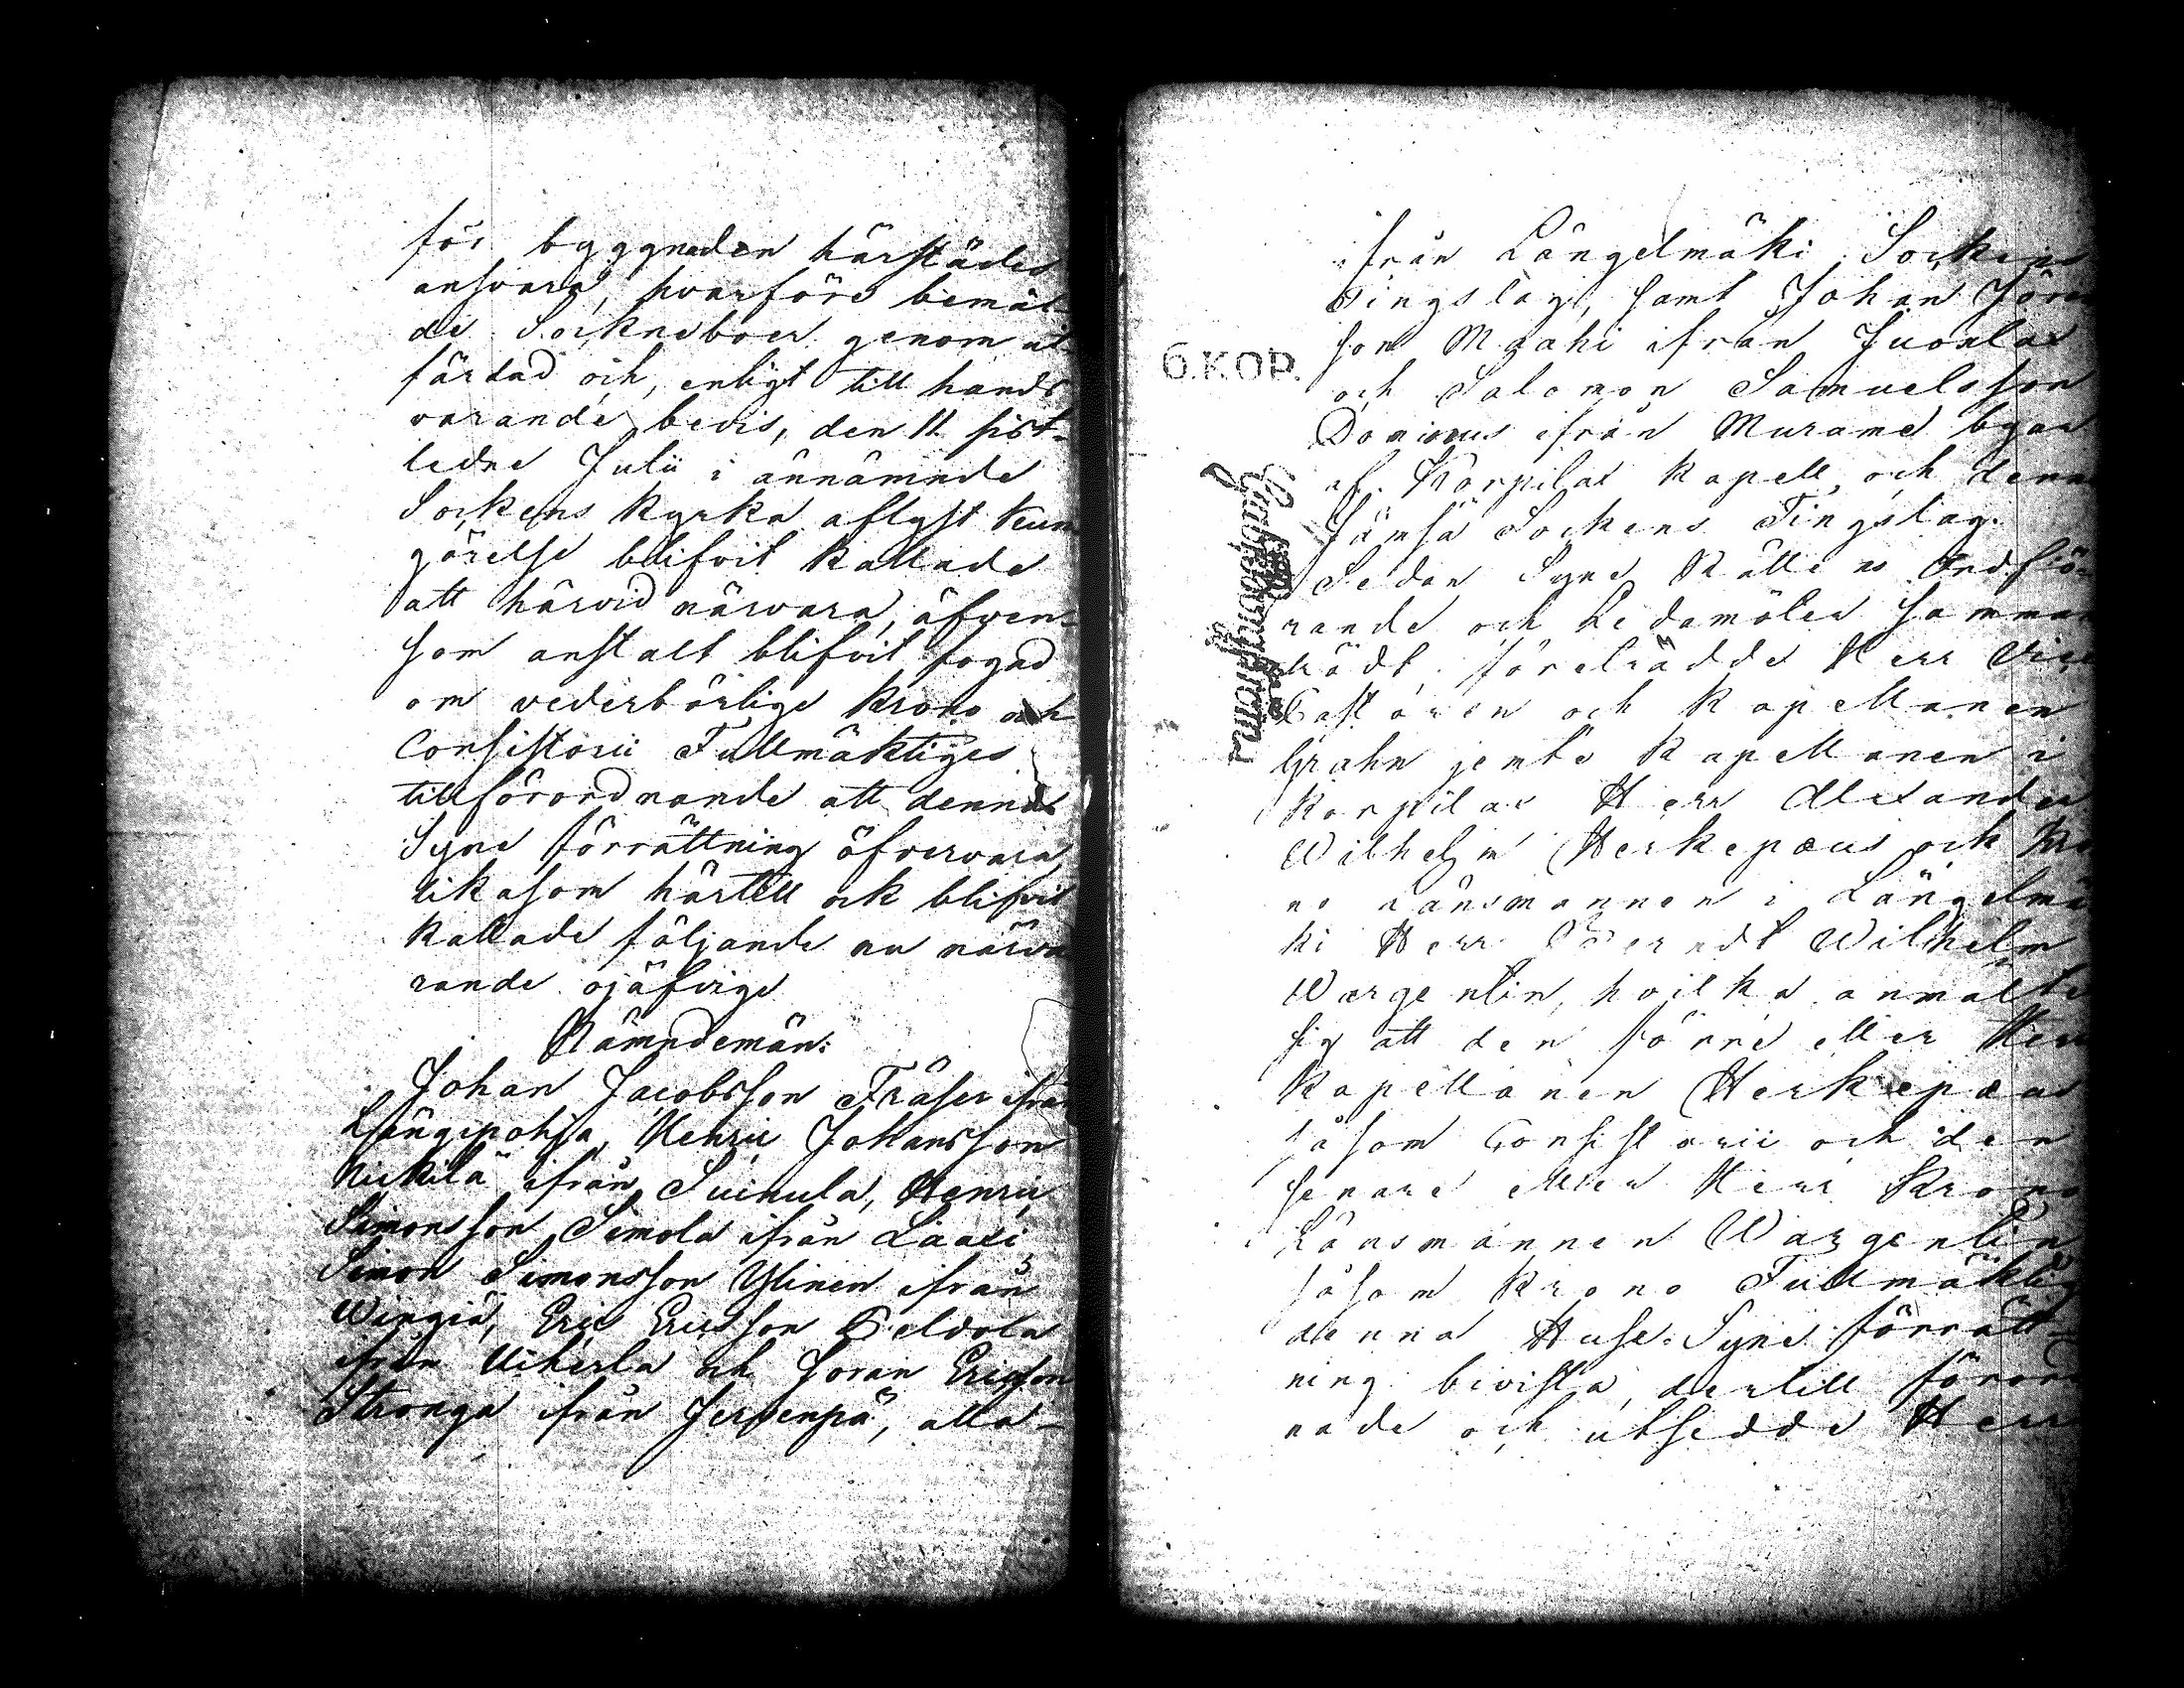 för byggnaden härstädes
ansvara, hvarföre bemäl-
de Sockneboer genom ut-
färdad och, enligt till hands
varande bevis, den 11 sist-
ledne Julii i annämnde
Sockens kyrka aflyst kun
görelse blifvit kallade
att härvid närvara, äfven-
som anstalt blifvit fogad
om vederbörlige Krono och
Consistorii Fullmäktiges
tillförordnande att denna
Syne förrättning öfvervara,
likasom härtill ock blifvit
kallade följande nu närva
rande ojäfvige
Nämndemän:
Johan Jacobsson Fräser ifrån
Längipohja, Henric Johansson
Kickilä ifrån Suinula, Henric
Simonsson Simola ifrån Laaxi
Simon Simonsson Ylinen ifrån
Wingiä, Eric Ericsson Peldola
ifrån Uiherla och Joran Ericsson
Stronga ifrån Jervenpä, alla-
ifrån Längelmäki Sockens
Tingslag, samt Johan Jöran
son Maahi ifrån Juonlax
och Salomon Samuelsson
ifrån Murame byar
af Korpilax kapell, och denna
Jämsä Sockens Tingslag.
Sedan Syne Rättens Ordfö-
rande och Ledamöter samman
trädt, företrädde Herr Vice
Pastoren och Kapellanen
Grahn jemte Kapellanen i
Korpilax Herr Alexander
Wilhelm Herkepæus och Kro
no Länsmannen i Längelmä
ki Herr Berndt Wilhelm
Wargentin, hvilka anmälte
sig att den förre eller Herr
Kapellanen Herkepæus
såsom Consistorii och den
senare eller Herr Krono
Länsmannen Wargentin
såsom Krono Fullmäktig
denna Huse-Syne förrätt-
ning bivista, dertill föror
nade och utsedde Herr
6.KOP.